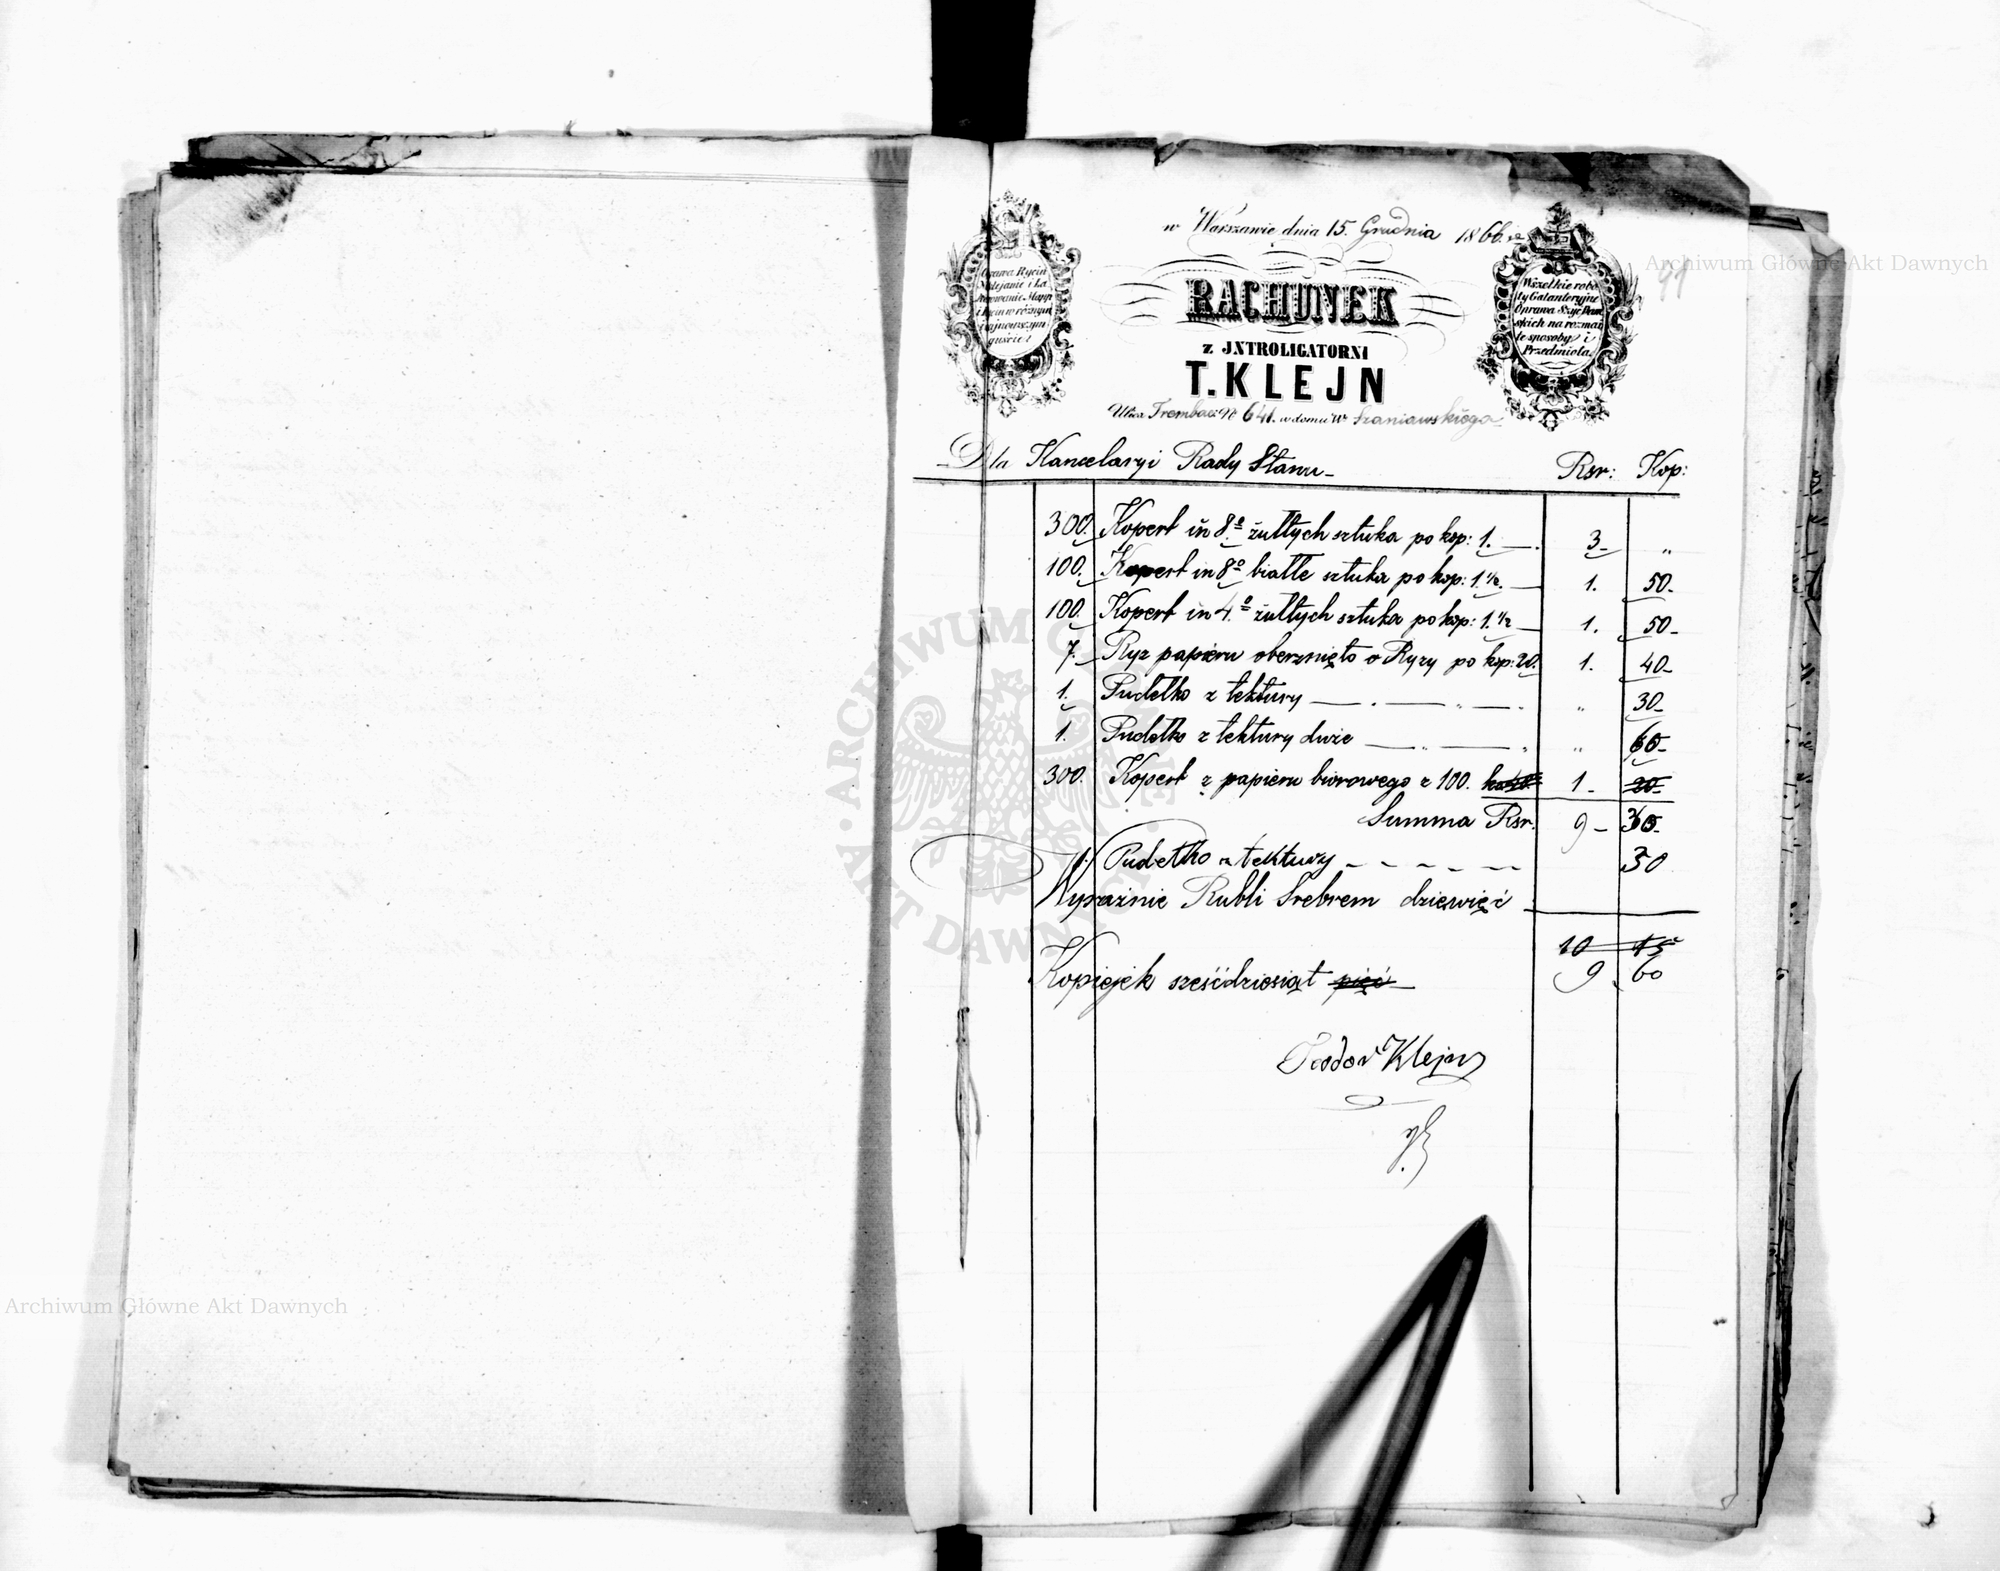 w Warszawie dnia 15. Grudnia 1866. r.
Oprawa Rycin
Naklejanie i La
kierowanie Mapp
i Rycin w różnym
i najnowszym
guście
Wszelkie robo
ty Galanteryjne
Oprawa Szyć Dam
skich na rozmai
te sposoby i
Przedmiota.
RACHUNEK
z JNTROLIGATORNI
T. KLEJN
Ulica Trembac: Nº 641. w domu Wº Szaniawskiego
91
Dla Kancelaryi Rady Stanu Rsr: Kop:
300. Kopert in 8º żułtych sztuka po kop: 1. 3 „
100. Kopert in 8º białłe sztuka po kop: 1.½. 1. 50
100. Kopert in 4.º żułtych sztuka po kop: 1.½ 1. 50
7. Ryz papieru oberznięto o Ryzy po kop: 20. 1. 40
1. Pudełko z tektury „ 30
1. Pudełko z tektury duże „ 60
300. Kopert z papieru biorowego z 100. 1 20
Summa Rsr. 9 30
1. Pudełko z tektury 30
Wyraźnie Rubli Srebrem dziewięć
10 15
Kopiejek sześćdziesiąt pięć 9 60
Teodor Klejn
Archiwum Główne Akt Dawnych
Archiwum Główne Akt Dawnych
ARCHIWUM GŁÓWNE AKT DAWNYCH